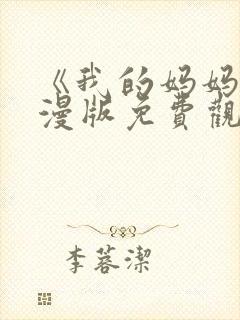 《我的妈妈
漫版免費觀
李蓉潔